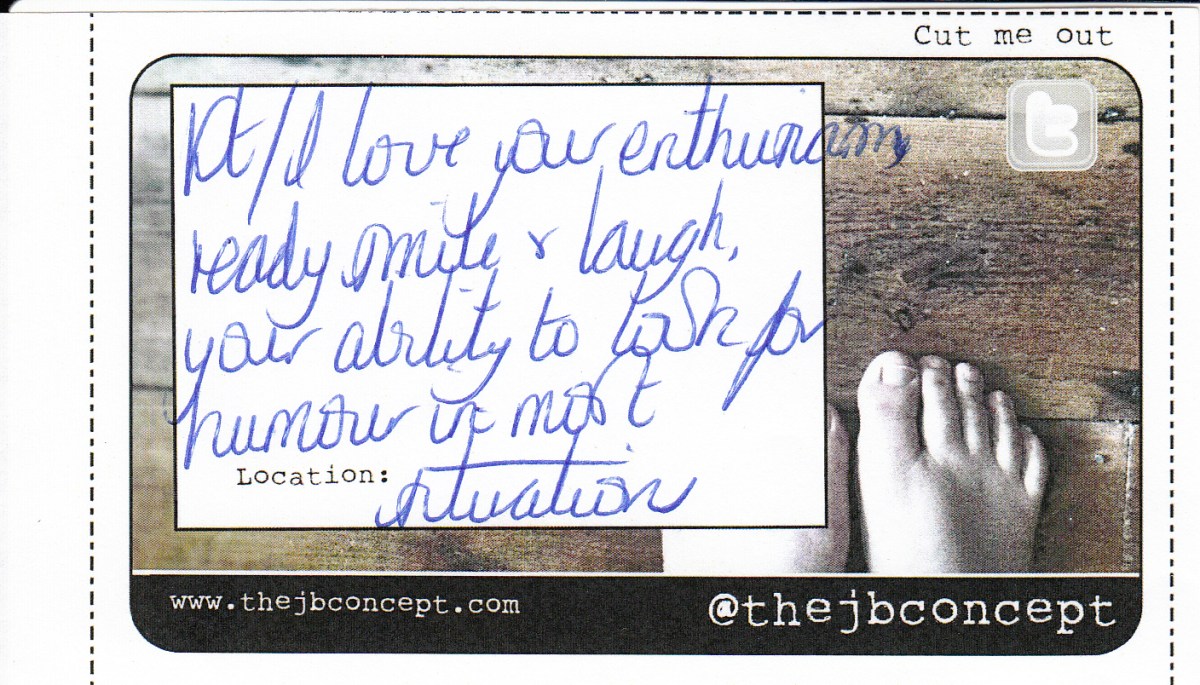 Cut me out
I love your enthusiasm,
ready smile & laugh,
your ability to look for
humour in most
Location: situation
www.thejbconcept.com
@thejbconcept